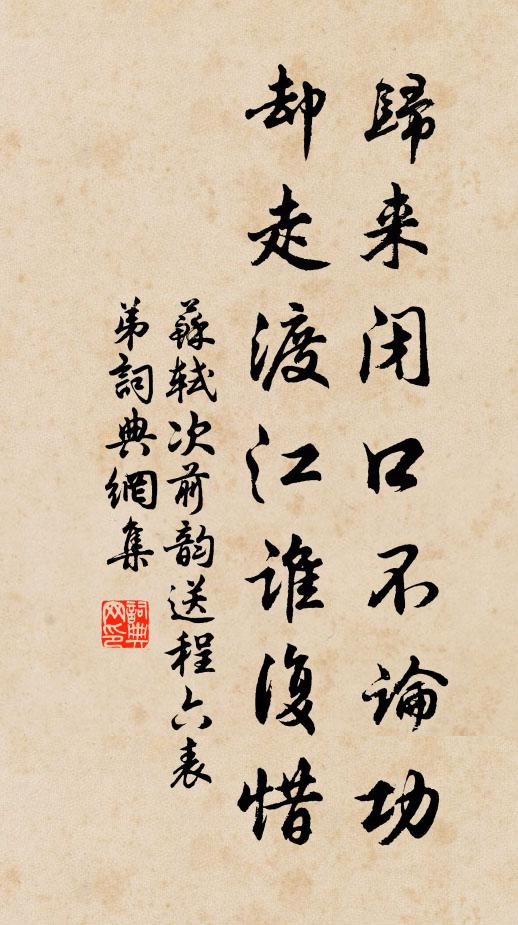 歸来闭口不論功
却走渡江誰復惜
蘇軾次前韵送程六表
弟詞典網集
詞典网印